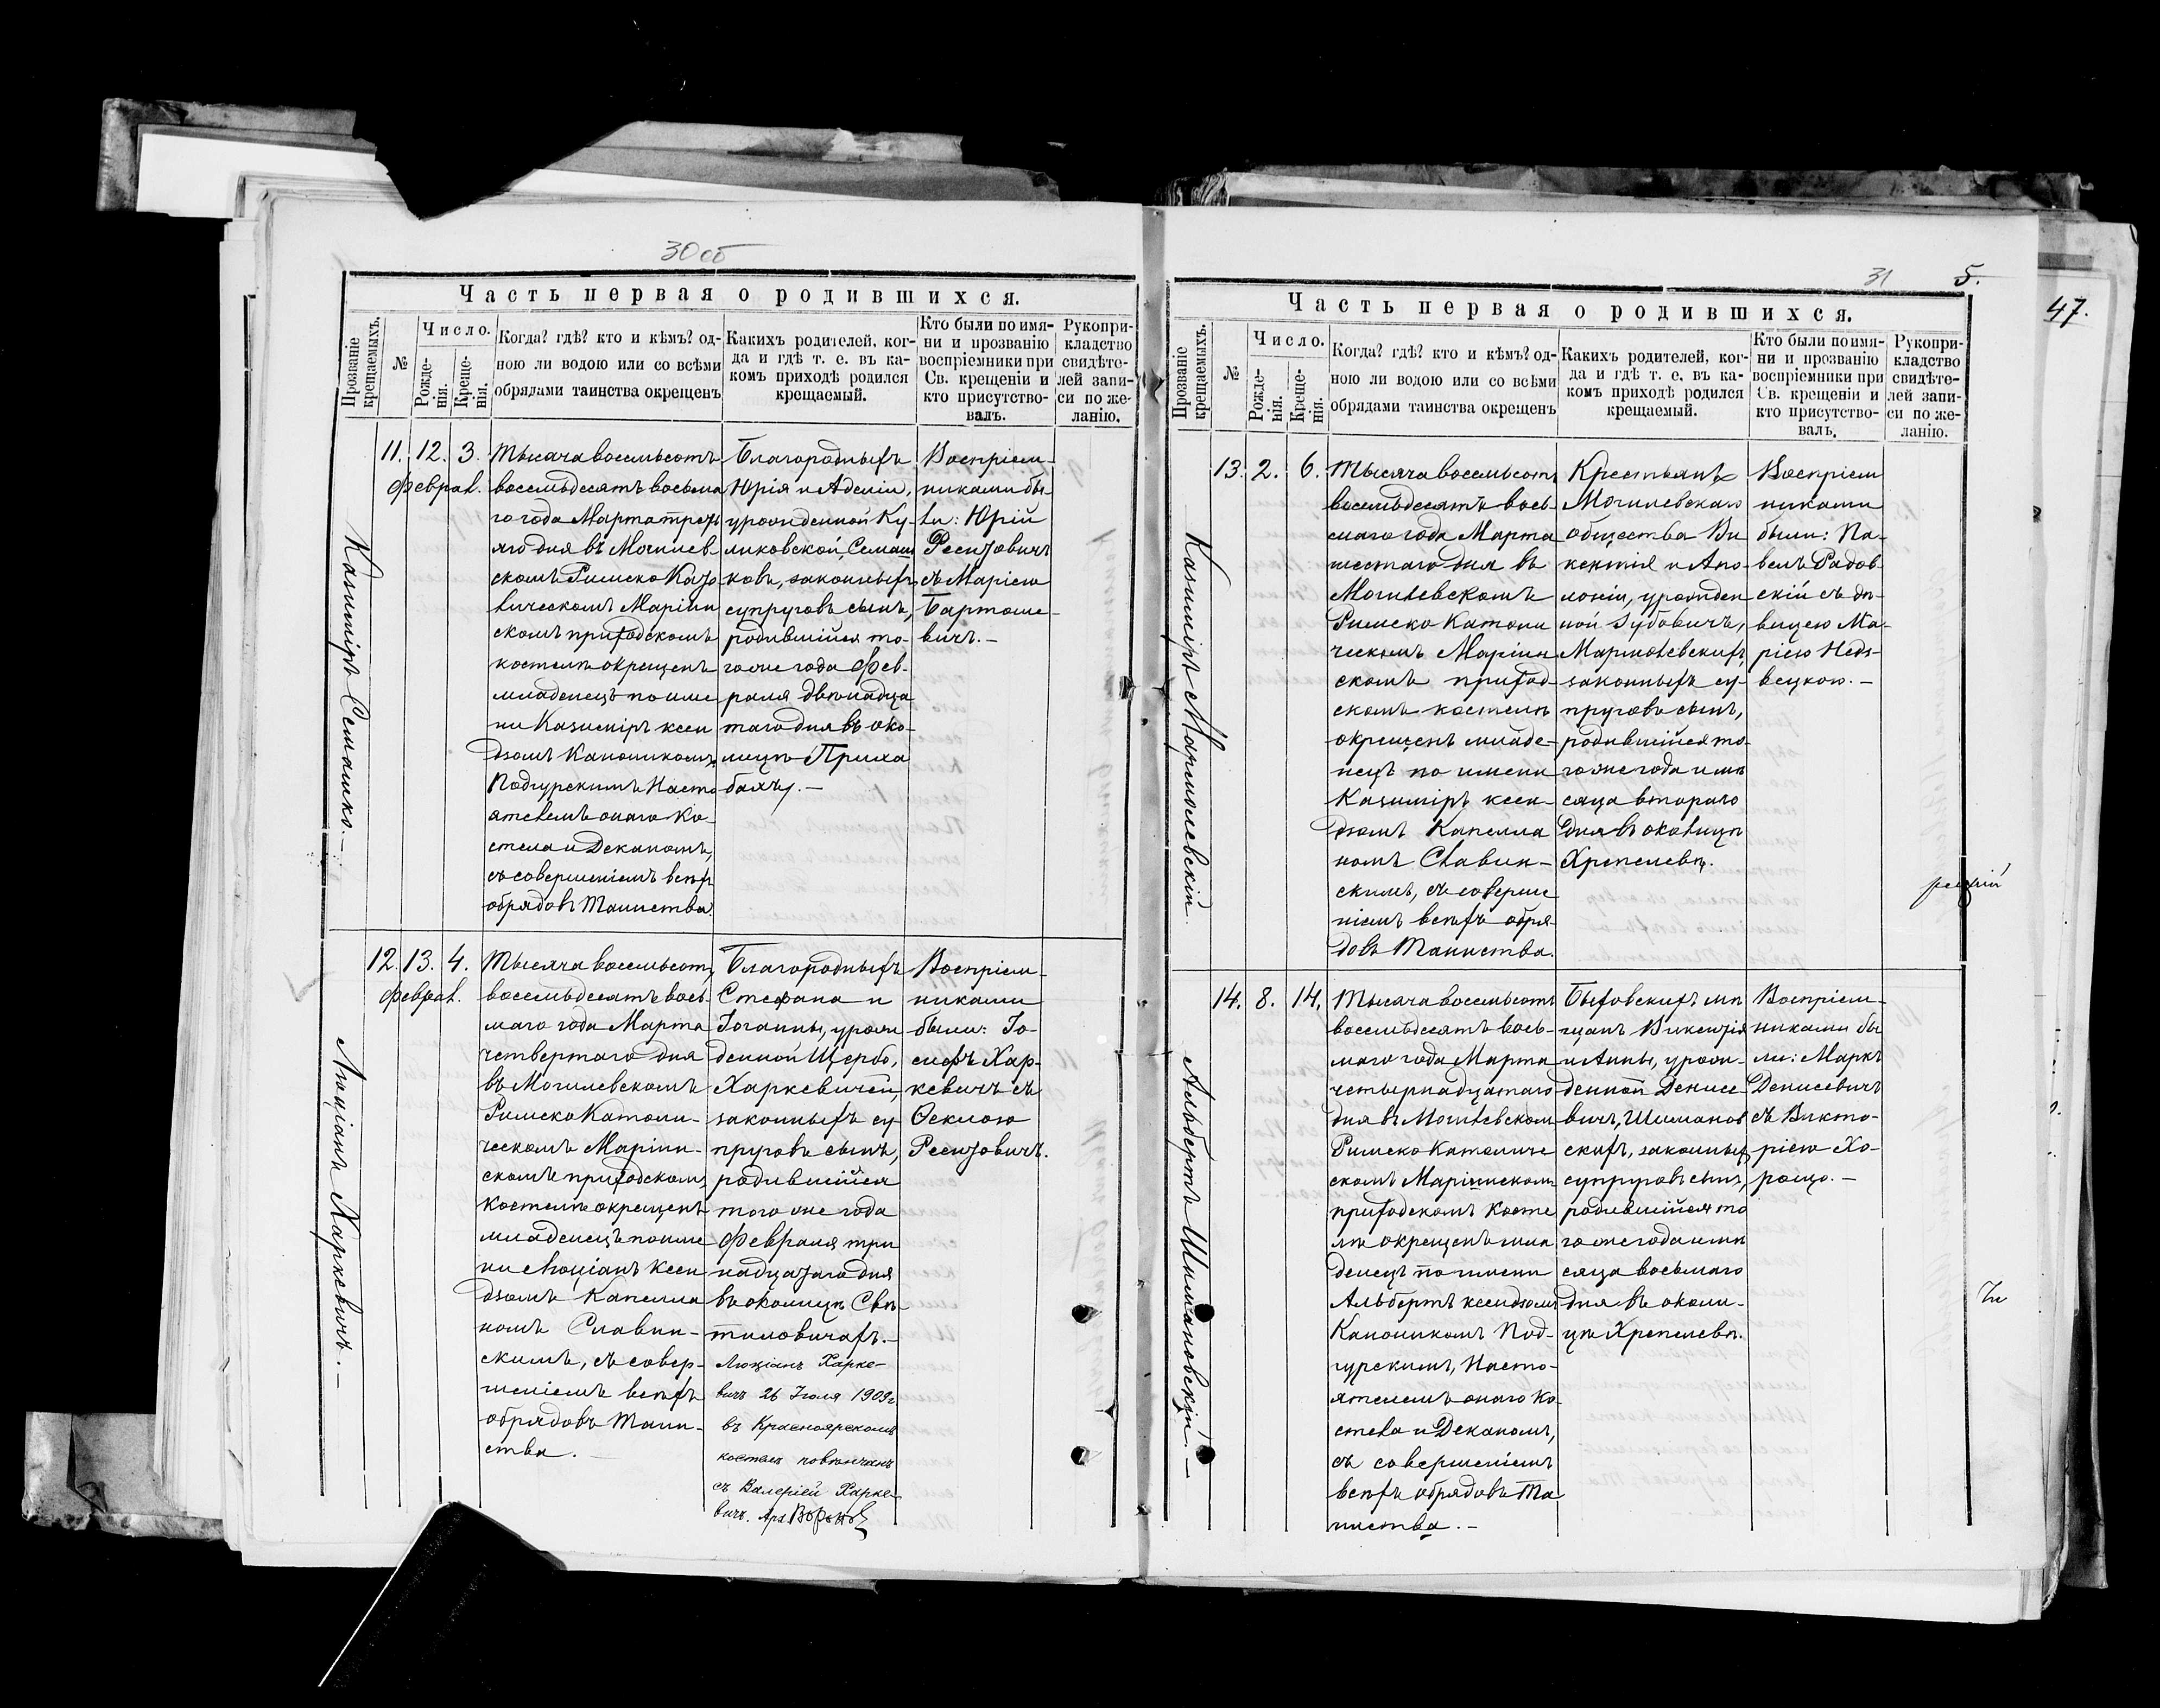 30 об
Часть первая о родившихся.
Прозваніе крещаемыхъ.
№
Число.
Рожде-
нія.
Креще-
нія.
Когда? гдѣ? кто и кѣмъ? од-
ною ли водою или со всѣми
обрядами таинства окрещенъ
Какихъ родителей, ког-
да и гдѣ т. е. въ ка-
комъ приходѣ родился
крещаемый.
Кто были по имя-
ни и прозванію
воспріемники при
Св. крещеніи и
кто присутство-
валъ.
Рукопри-
кладство
свидѣте-
лей запи-
си по же-
ланію.
Казиміръ Семашко.—
11. 12. 3.
Феврал.
Тысяча восемьсотъ
восемьдесятъ восьма
го года Марта треть
яго дня въ Могилев
скомъ Римско Като
лическомъ Маріин
скомъ приходскомъ
костелѣ окрещенъ
младенецъ по име
ни Казиміръ ксен
дзомъ Каноникомъ
Подгурскимъ Насто
ятелемъ онаго Ко-
стела и Деканомъ,
съ совершеніемъ всѣхъ
обрядовъ Таинства.
Благородныхъ
Юрія и Аделіи,
урожденной Ку-
ликовской, Семаш
ковъ, законныхъ
супруговъ сынъ,
родившійся то-
гоже года Фев-
раля двѣнадца
таго дня въ око-
лицѣ
Воспріем-
никами бы-
ли: Юрій
Рентовичъ
съ Маріею
Бартоше-
вичъ.—
Люціанъ Харкевичъ.—
12. 13. 4.
Феврал.
Тысяча восемьсотъ
восемьдесятъ вось-
маго года Марта
четвертаго дня
въ Могилевскомъ
Римско Католи-
ческомъ Маріин-
скомъ приходскомъ
костелѣ окрещенъ
младенецъ по име
ни Люціанъ ксен
дзомъ Капелла
номъ Славин-
скимъ, съ совер-
шеніемъ всѣхъ
обрядовъ Таин-
ства.
Благородныхъ
Стефана и
Іоганны, урож
денной Щербо,
Харкевичей,
законныхъ су-
пруговъ сынъ,
родившійся
того же года
Февраля три
надцатаго дня
въ околицѣ Свѣ-
тиловичахъ.—
Люціанъ Харке-
вичъ 26 Іюля 1909 г
въ Красноярскомъ
костелѣ повѣнчанъ
съ Валеріей Харке-
вичъ.
Воспріем-
никами
были: Іо-
сифъ Хар-
кевичъ съ
Ѳеклою
Рентовичъ.
31
5.
47.
Часть первая о родившихся.
Прозваніе крещаемыхъ.
№
Число.
Рожде-
нія.
Креще-
нія.
Когда? гдѣ? кто и кѣмъ? од-
ною ли водою или со всѣми
обрядами таинства окрещенъ
Какихъ родителей, ког-
да и гдѣ т. е. въ ка-
комъ приходѣ родился
крещаемый.
Кто были по имя-
ни и прозванію
воспріемники при
Св. крещеніи и
кто присутство-
валъ.
Рукопри-
кладство
свидѣте-
лей запи-
си по же-
ланію.
Казиміръ Мармолевскій
13. 2. 6.
Тысяча восемьсотъ
восемьдесятъ вось-
маго года Марта
шестаго дня въ
Могилевскомъ
Римско Католи
ческомъ Маріин
скомъ приход-
скомъ костелѣ
окрещенъ младе-
нецъ по имени
Казиміръ ксен-
дзомъ Капелла
номъ Славин-
скимъ, съ соверше
ніемъ всѣхъ обря-
довъ Таинства.
Крестьянъ
Могилевскаго
общества Ви
кентія и Апо-
лоніи, урожден
ной Зубовичъ,
Мармолевскихъ,
законныхъ су-
пруговъ сынъ,
родившійся то-
гоже года и мѣ
сяца втораго
дня въ околицѣ
Хрепелевѣ.
Воспріем
никами
были: Па-
велъ Радов
скій съ дѣ-
вицею Ма-
ріею
Альбертъ Шимановскій.—
14. 8. 14.
Тысяча восемьсотъ
восемьдесятъ вось-
маго года Марта
четырнадцатаго
дня въ Могилевском
Римско Католиче
скомъ Маріинском
приходскомъ косте
лѣ окрещенъ мла
денецъ по имени
Альбертъ ксендзомъ
Каноникомъ Под-
гурскимъ, Насто-
ятелемъ онаго Ко-
стела и Деканомъ,
съ совершеніемъ
всѣхъ обрядовъ Та
инства.—
Быховскихъ мѣ
щанъ Викентія
и Анны, урож-
денной Денисе
вичъ, Шиманов
скихъ, законныхъ
супруговъ сынъ,
родившійся то
гоже года и мѣ
сяца восьмаго
дня въ околи-
цѣ Хрепелевѣ.
Воспріем-
никами бы
ли: Маркъ
Денисевичъ
съ Викто-
ріею Хо-
рощо.—